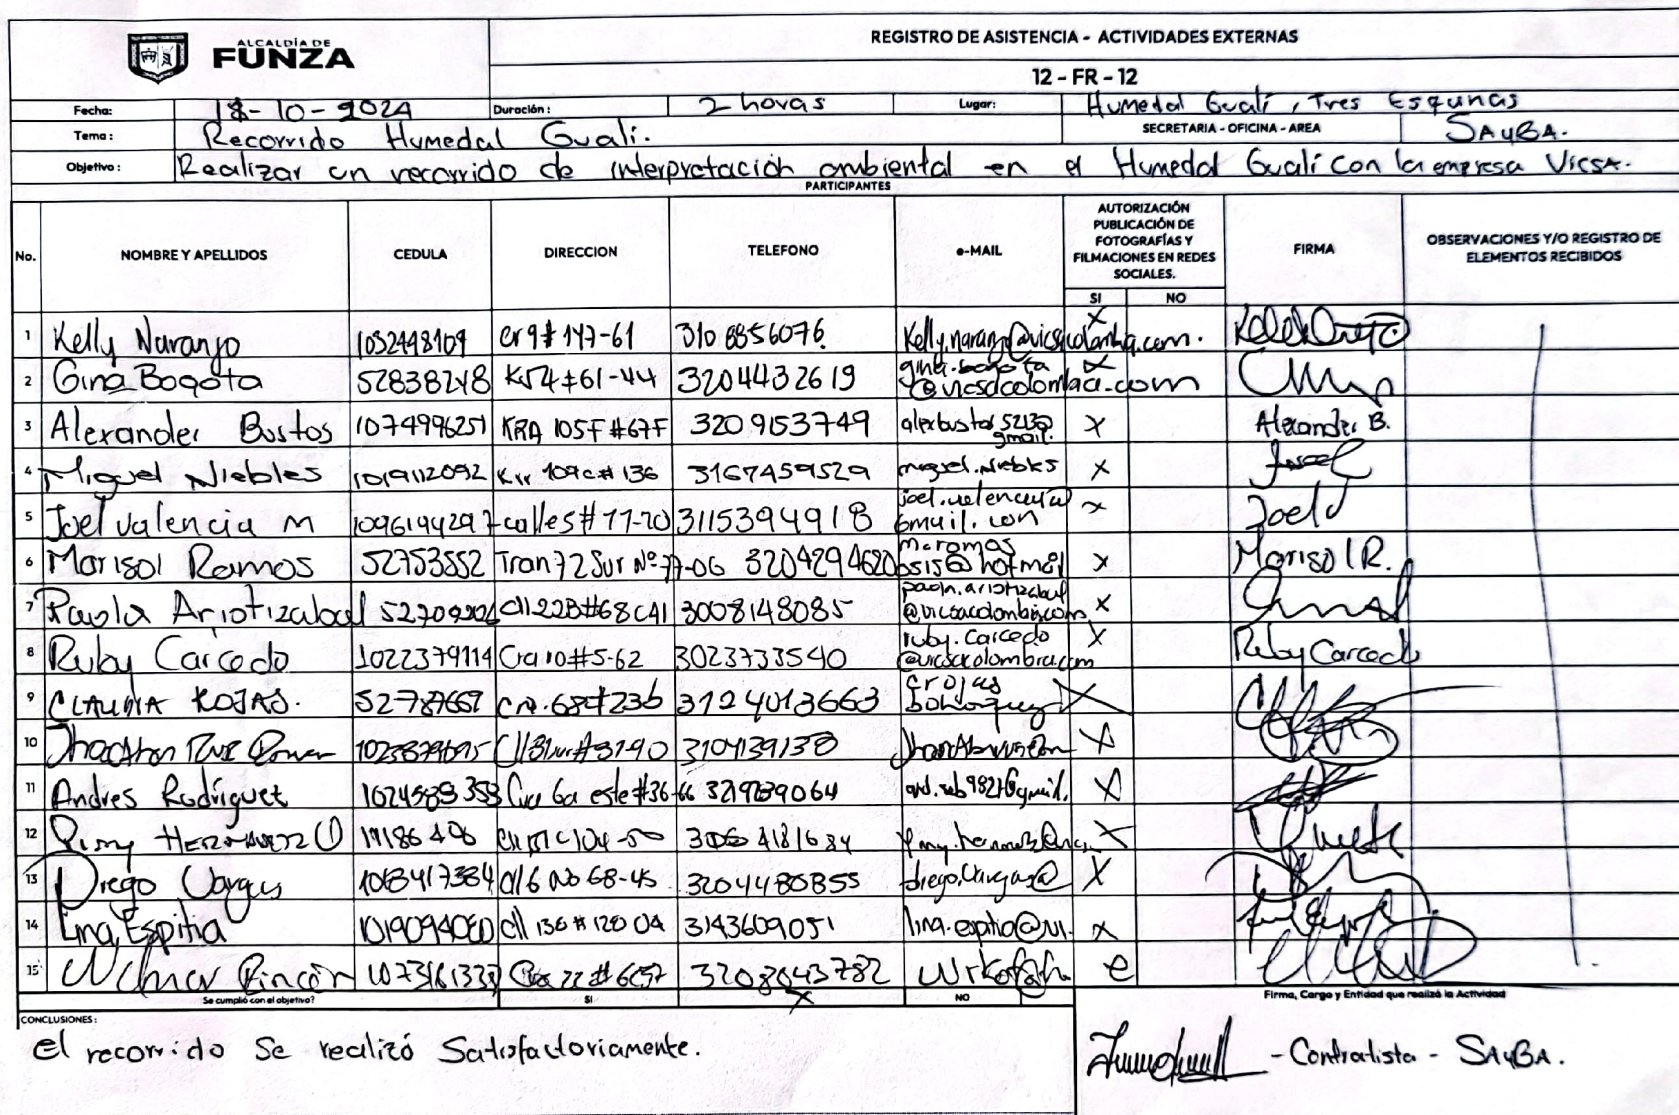 ALCALDÍA DE
FUNZA
REGISTRO DE ASISTENCIA - ACTIVIDADES EXTERNAS
12 - FR - 12
Fecha: 18-10-2024 Duración: 2 horas Lugar: Humedal Gualí, Tres Esquinas
Tema: Recorrido Humedal Gualí. SECRETARIA - OFICINA - AREA SAyBA.
Objetivo: Realizar un recorrido de interpretación ambiental en el Humedal Gualí con la empresa Vicsa.
PARTICIPANTES
No. NOMBRE Y APELLIDOS CEDULA DIRECCION TELEFONO e-MAIL AUTORIZACIÓN PUBLICACIÓN DE FOTOGRAFÍAS Y FILMACIONES EN REDES SOCIALES. SI NO FIRMA OBSERVACIONES Y/O REGISTRO DE ELEMENTOS RECIBIDOS
1 Kelly Naranjo 1032448109 cr 9 # 147-61 310 8856076 Kelly.naranjo@vicsacolombia.com. X
2 Gina Bogota 52838248 K54 #61-44 3204432619 gina.bogota @vicsacolombia.com X
3 Alexander Bustos 1074996251 KRA 105F #67F 3209153749 alexbustos5213@ gmail. X Alexander B.
4 Miguel Niebles 1019112092 Krr 109c # 136 3167459529 miguel.Niebles X
5 Joel valencia M 1096194297 calle 5 # 17-20 3115394918 joel.valencia@ Gmail.con X Joel V
6 Marisol Ramos 52753552 Tran 72 Sur Nº 77-06 3204294620 maramos osis@hotmail X Marisol R.
7 Paola Aristizabal Cll 22B #68C41 3008148085 paola.aristizabal @vicsacolombia.com X
8 Ruby Carcedo 1022379114 Cra 10 #5-62 3023733540 ruby.carcedo @vicsacolombia.com X Ruby Carcedo
9 CLAUDIA ROJAS. 52787667 cra. 68 # 23b 3124013663 crojas bohorquez X
10 3104139138 X
11 Andres Rodriguez 1024589353 Cra 6a este #36-66 X
12 HERNANDEZ X
13 Diego Vargas 1068417384 Cll 6 No 68-45 3204480855 diego.Vargas@ X
14 Lina Espitia 1019094060 Cll 136 # 120 04 3143609051 lina.espitia@vi. X
15 Wilmer Rincón
Se cumplió con el objetivo? SI X NO
CONCLUSIONES:
el recorrido se realizó Satisfactoriamente.
Firma, Cargo y Entidad que realizó la Actividad
- Contratista - SAyBA.